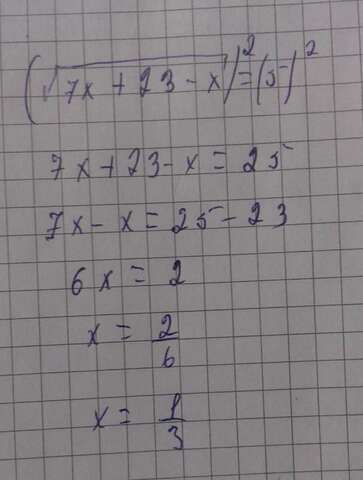 (√7x + 23 - x)² = (5)²
7x + 23 - x = 25
7x - x = 25 - 23
6x = 2
x = 2/6
x = 1/3